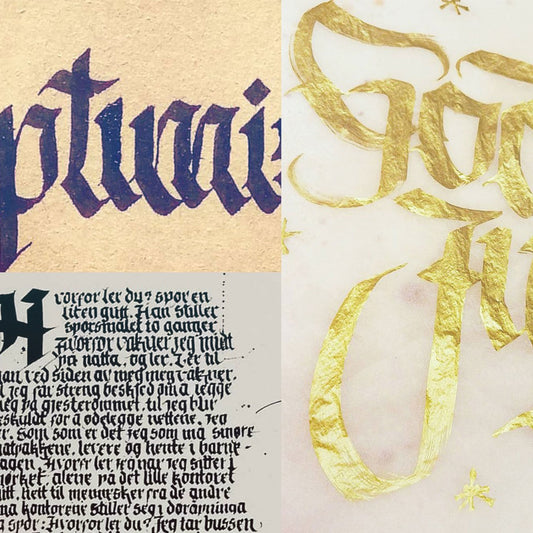 ptimi
Hvorfor ler du? spør en
liten gutt. Han stiller
spørsmålet to ganger.
Hvorfor våkner jeg midt
på natta, og ler. Ler til
han ved siden av meg våkner,
til jeg får streng beskjed om å legge
meg på gjesterommet, til jeg blir
beskyldt for å ødelegge nettene. Jeg
ler. Som som er det jeg som må smøre
matpakkene, levere og hente i barne-
hagen. Hvorfor ler jeg når jeg sitter i
mørket, alene på det lille kontoret
mitt. Helt til mennesker fra de andre
små kontorene stiller seg i døråpninga
og spør: Hvorfor ler du? Jeg tar bussen
Goo
Fri